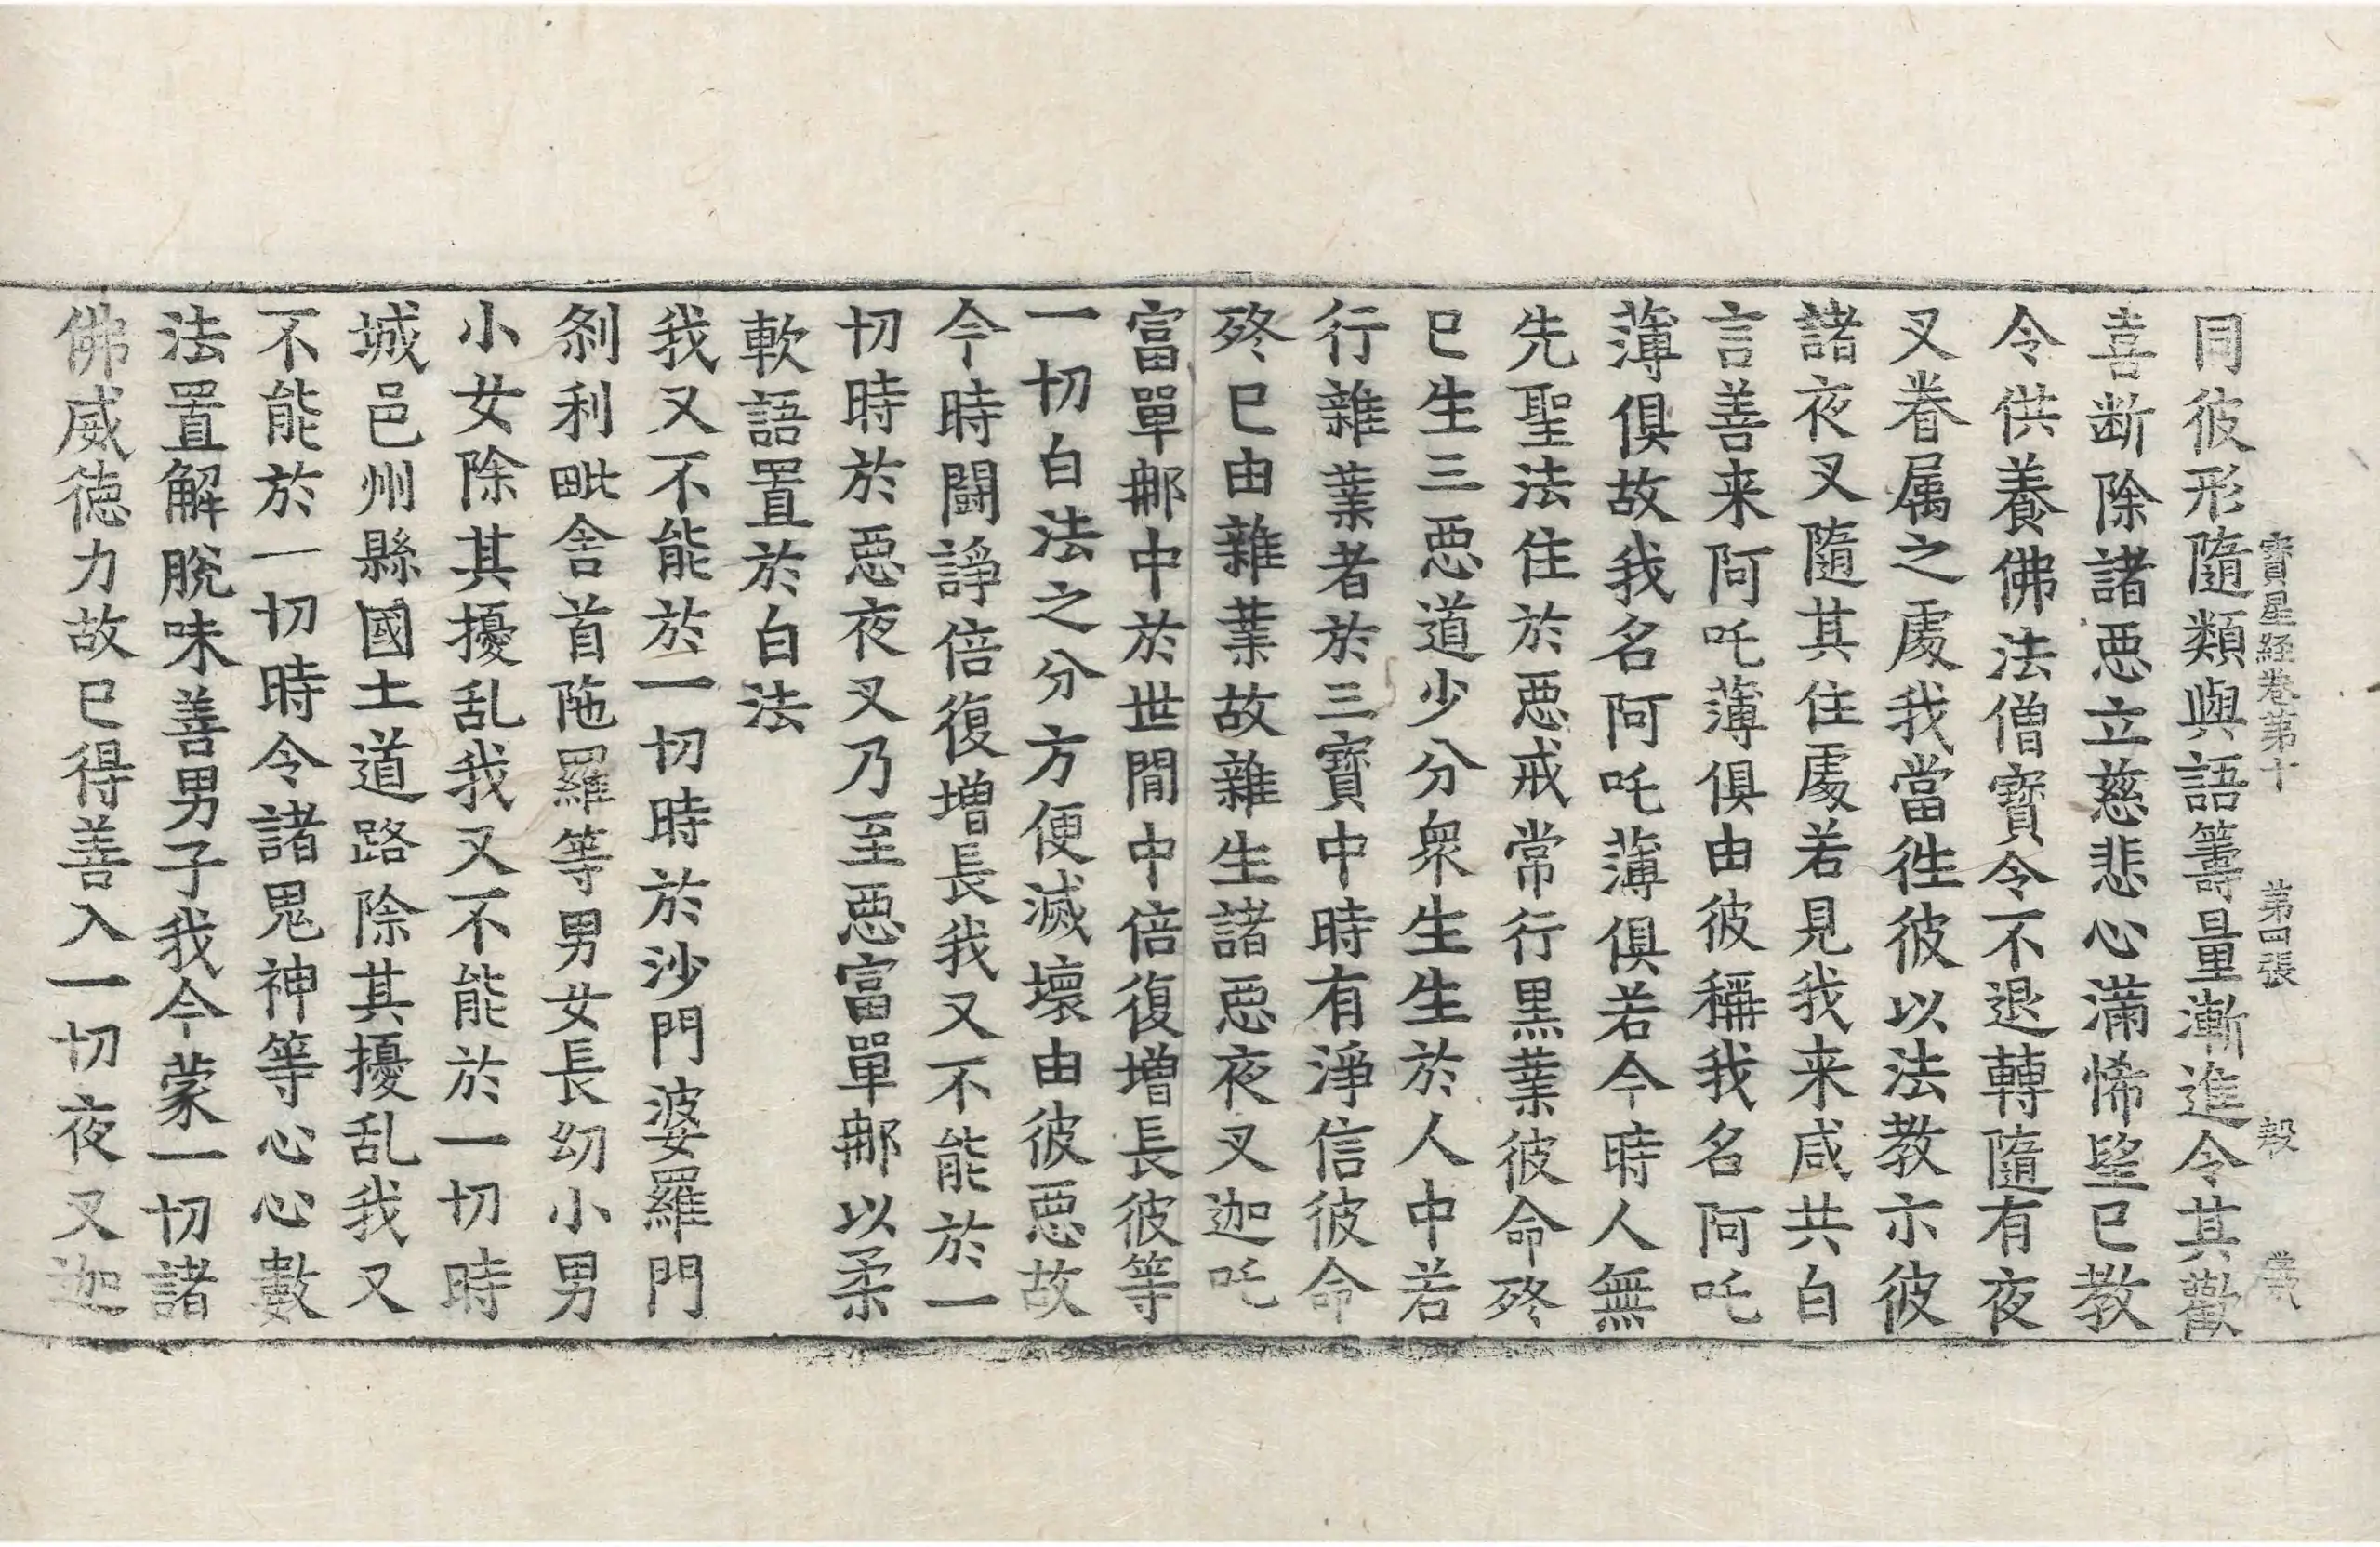 寳星経巻第十 第四張 㲉
同彼形隨類與語籌量漸進令其歡
喜断除諸惡立慈悲心滿悕望已教
令供養佛法僧寳令不退轉隨有夜
叉眷属之處我當往彼以法教示彼
諸夜叉隨其住處若見我来咸共白
言善来阿吒薄俱由彼稱我名阿吒
薄俱故我名阿吒薄俱若今時人無
先聖法住於惡戒常行黒業彼命終
已生三惡道少分衆生生於人中若
行雜業者於三寳中時有淨信彼命
終已由雜業故雜生諸惡夜叉迦吒
富單那中於世閒中倍復增長彼等
一切白法之分方便滅壞由彼惡故
今時鬪諍倍復增長我又不能於一
切時於惡夜叉乃至惡富單那以柔
軟語置於白法
我又不能於一切時於沙門婆羅門
刹利毗舍首陁羅等男女長幼小男
小女除其擾乱我又不能於一切時
城邑州縣國土道路除其擾乱我又
不能於一切時令諸鬼神等心心數
法置解脫味善男子我今蒙一切諸
佛威德力故已得善入一切夜叉迦